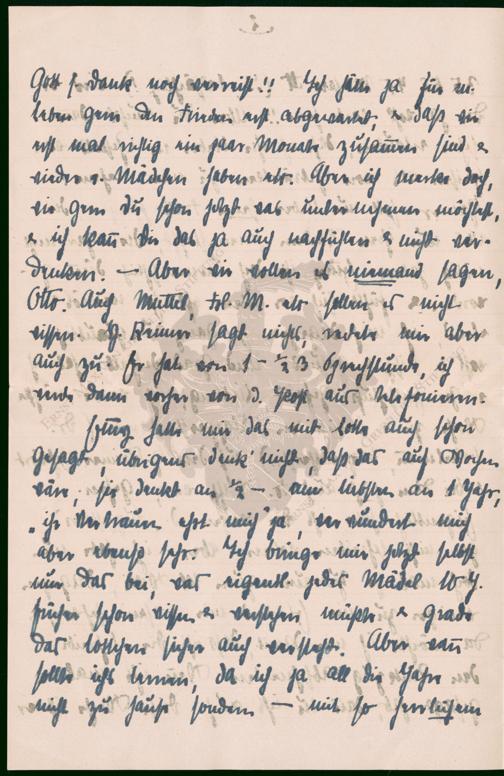 Gott s. dank noch verreist!! Ich hätte ja zur m.
leben gern den Frieden erst abgewartet, & daß wir
erst mal richtig ein paar Monate zusammen sind &
wieder e. Mädchen haben etc. Aber ich merke doch,
wie gern du schon jetzt was unternehmen möchtest,
& ich kann dir das ja auch nachfühlen & nicht ver-
denken. — Aber wir wollen es niemand sagen,
Otto. Auch Muttel, Frl. M. etc sollen es nicht
wissen. D. Reimer sagt nichts, redete mir aber
auch zu. Er hat von 1 – ½ 3 Sprechstunde, ich
werde dann vorher von d. Post aus telefonieren.
hatte mir das mit Lotte auch schon
gesagt, übrigens denk nicht, daß das auf Wochen
wäre, sie denkt an ½ – am liebsten an 1 Jahr,
"ihr Vertrauen ehrt mich" ja, verwundert mich
aber ebenso sehr. Ich bringe mir jetzt selbst
nur das bei, was eigentl. jedes Mädel 10 J.
früher schon wissen & verstehen müßte & grade
das Lottchen sicher auch versteht. Aber wann
sollte ichs lernen, da ich ja all die Jahre
nicht zu Hause sondern — mit so herrlichem